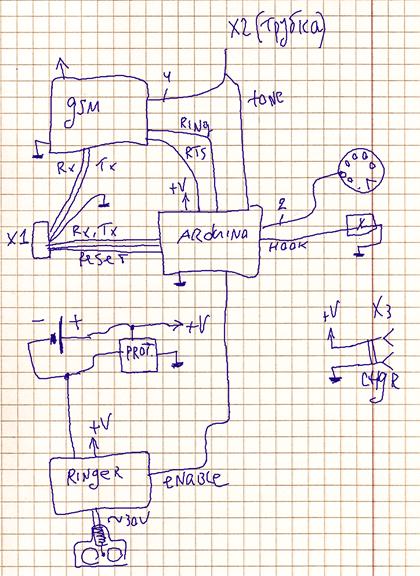 X2 (трубка)
4
GSM
tone
RING
RTS
Rx Tx
+V
2
ARDUINO
X1
Rx, Tx
RESET
HOOK
- +
+V
+V
X3
PROT.
CHGR
+V
RINGER
ENABLE
~30V